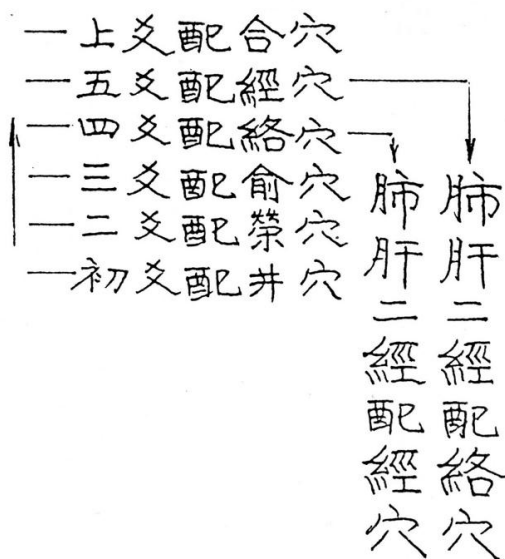 上爻配合穴
五爻配經穴
四爻配絡穴
三爻配俞穴
二爻配滎穴
初爻配井穴
肺肝二經配絡穴
肺肝二經配經穴